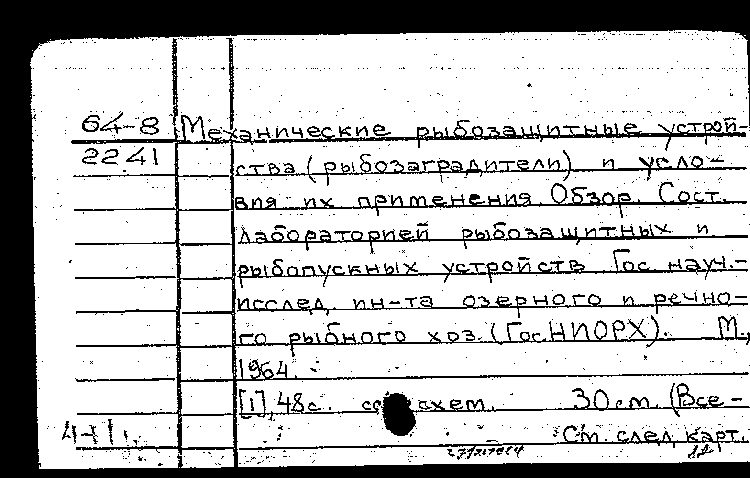 64-8 Механические рыбозащитные устрой-
2241 ства (рыбозаградители) и усло-
вия их применения. Обзор. Сост.
Лабораторией рыбозащитных и
рыбопускных устройств Гос. науч.-
исслед. ин-та озерного и речно-
го рыбного хоз. (ГосНИОРХ). М.,
1964.
[1], 48с. со схем. 30см. (Все-
См. след. карт.